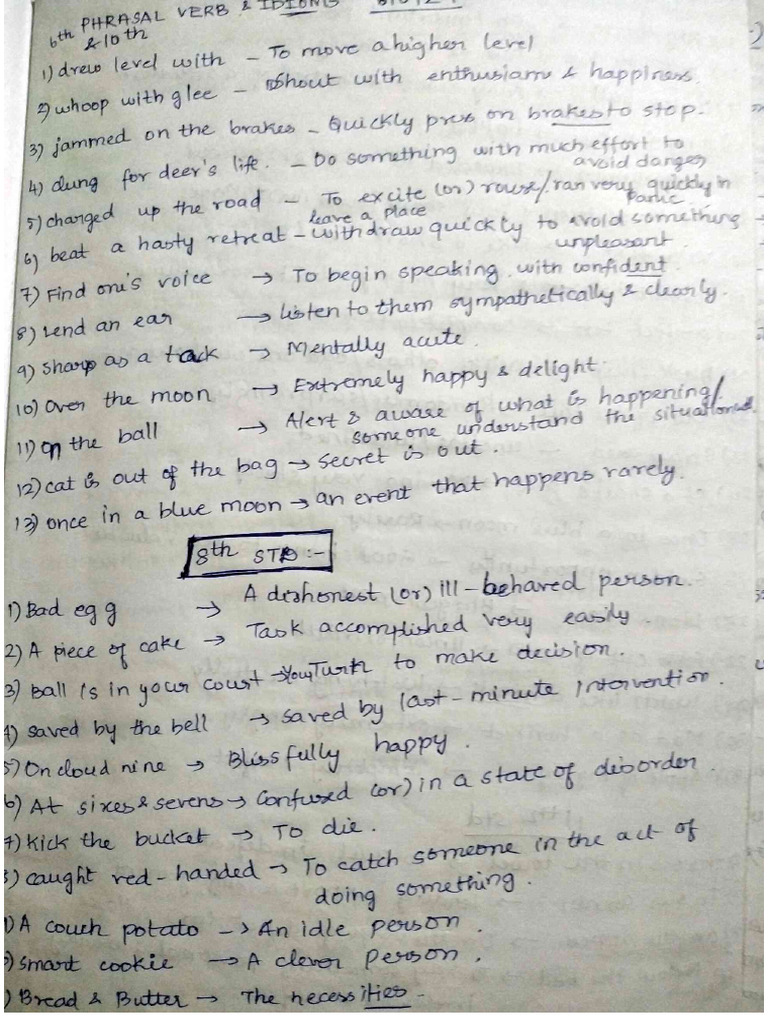 6th PHRASAL VERB & IDIOMS
& 10th
1) drew level with - To move a higher level
2) whoop with glee - Shout with enthusiasm & happiness.
3) jammed on the brakes - Quickly press on brakes to stop.
4) clung for deer's life. - Do something with much effort to
avoid danger
5) charged up the road - To excite (or) rouse/ran very quickly in
Panic
leave a place
6) beat a hasty retreat - withdraw quickly to avoid something
unpleasant.
7) Find one's voice → To begin speaking with confident.
8) Lend an ear → Listen to them sympathetically & clearly.
9) Sharp as a tack → Mentally acute.
10) Over the moon → Extremely happy & delight.
11) On the ball → Alert & aware of what is happening/
someone understand the situations.
12) cat is out of the bag → Secret is out.
13) once in a blue moon → an event that happens rarely.
8th STD :-
1) Bad egg → A dishonest (or) ill-behaved person.
2) A piece of cake → Task accomplished very easily.
3) Ball is in your court → Your Turn to make decision.
4) saved by the bell → saved by last-minute Intervention.
5) On cloud nine → Blissfully happy.
6) At sixes & sevens → Confused (or) in a state of disorder.
7) kick the bucket → To die.
) caught red-handed → To catch someone in the act of
doing something.
) A couch potato → An idle person.
) Smart cookie → A clever person.
) Bread & Butter → The necessities.